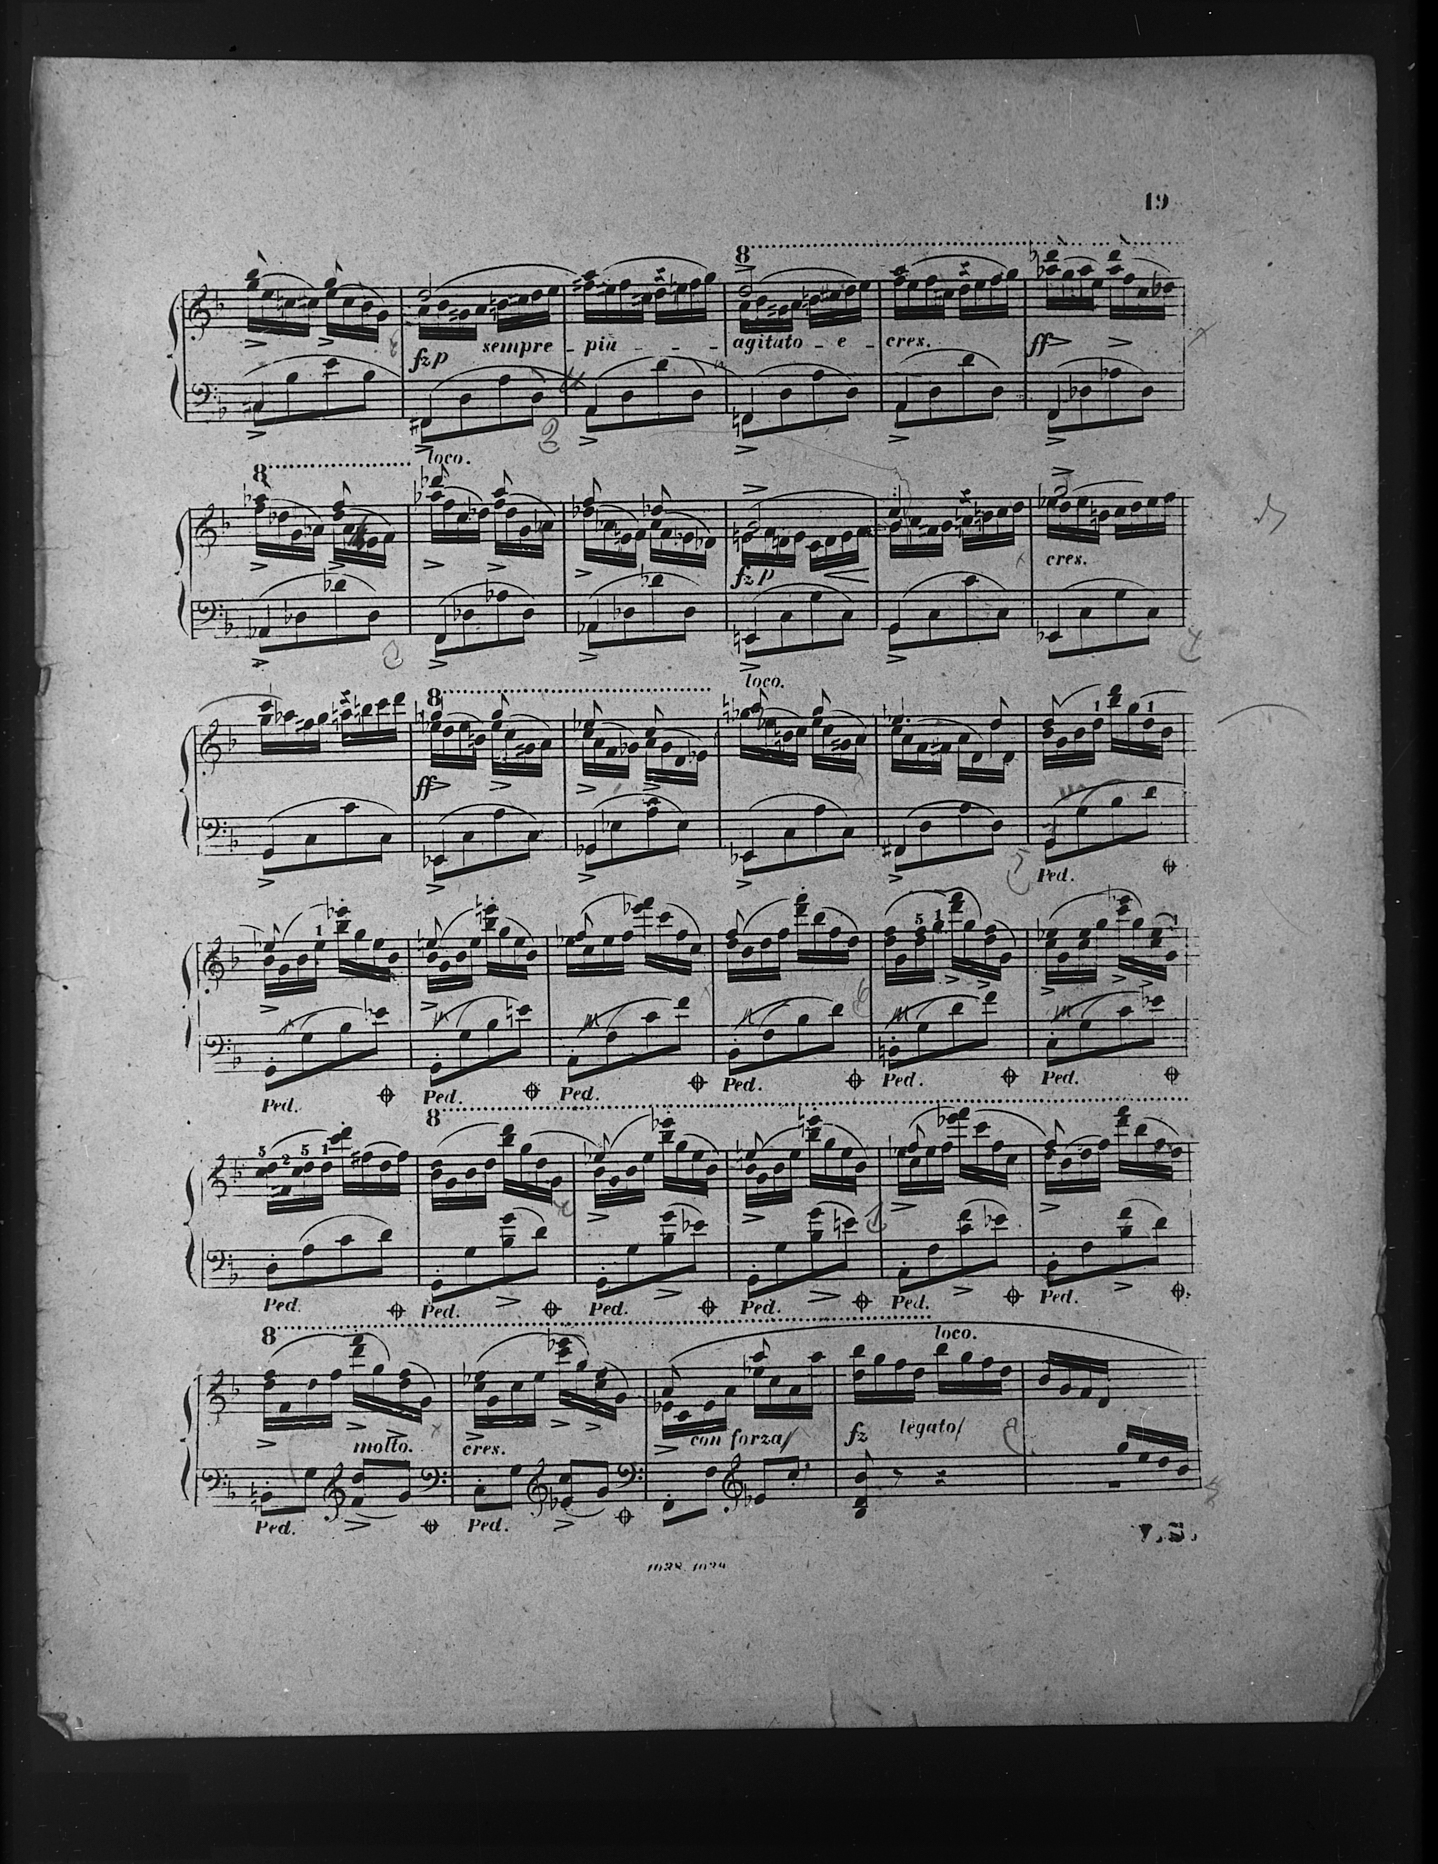 19
8
fz p sempre - più - - - agitato - e - cres. ff
8 loco.
fz p cres.
8 loco.
ff
1 1
Ped.
1
5 1
1
Ped. Ped. Ped. Ped. Ped. Ped.
8
5 2 5 1
Ped. Ped. Ped. Ped. Ped. Ped.
8 loco.
molto. cres. con forza fz legato
Ped. Ped.
V.S.
1028. 1029